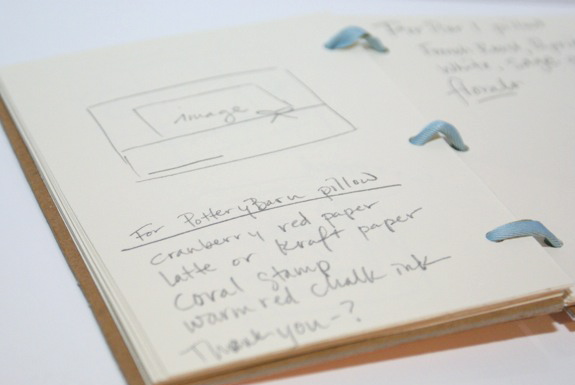 Image
For PotteryBarn pillow
cranberry red paper
latte or kraft paper
Coral Stamp
warm red chalk ink
Thank you-?
pillow
white, Sage
florals